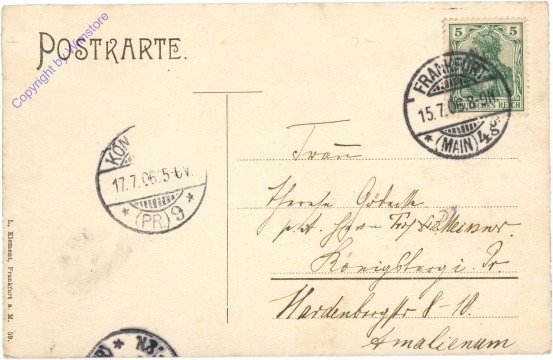 POSTKARTE.
Copyright by kvmstore
5 5
DEUTSCHES REICH
FRANKFURT
15.7.06. 8-9N.
* (MAIN) 4
KÖN
17.7.06. 5-6V.
* (PR.) 9 *
Frau
Therese
p. Adr. Herrn
Königsberg i. Pr.
Hardenbergstr 8-10.
Amalienum
L. Klement, Frankfurt a. M. 59.